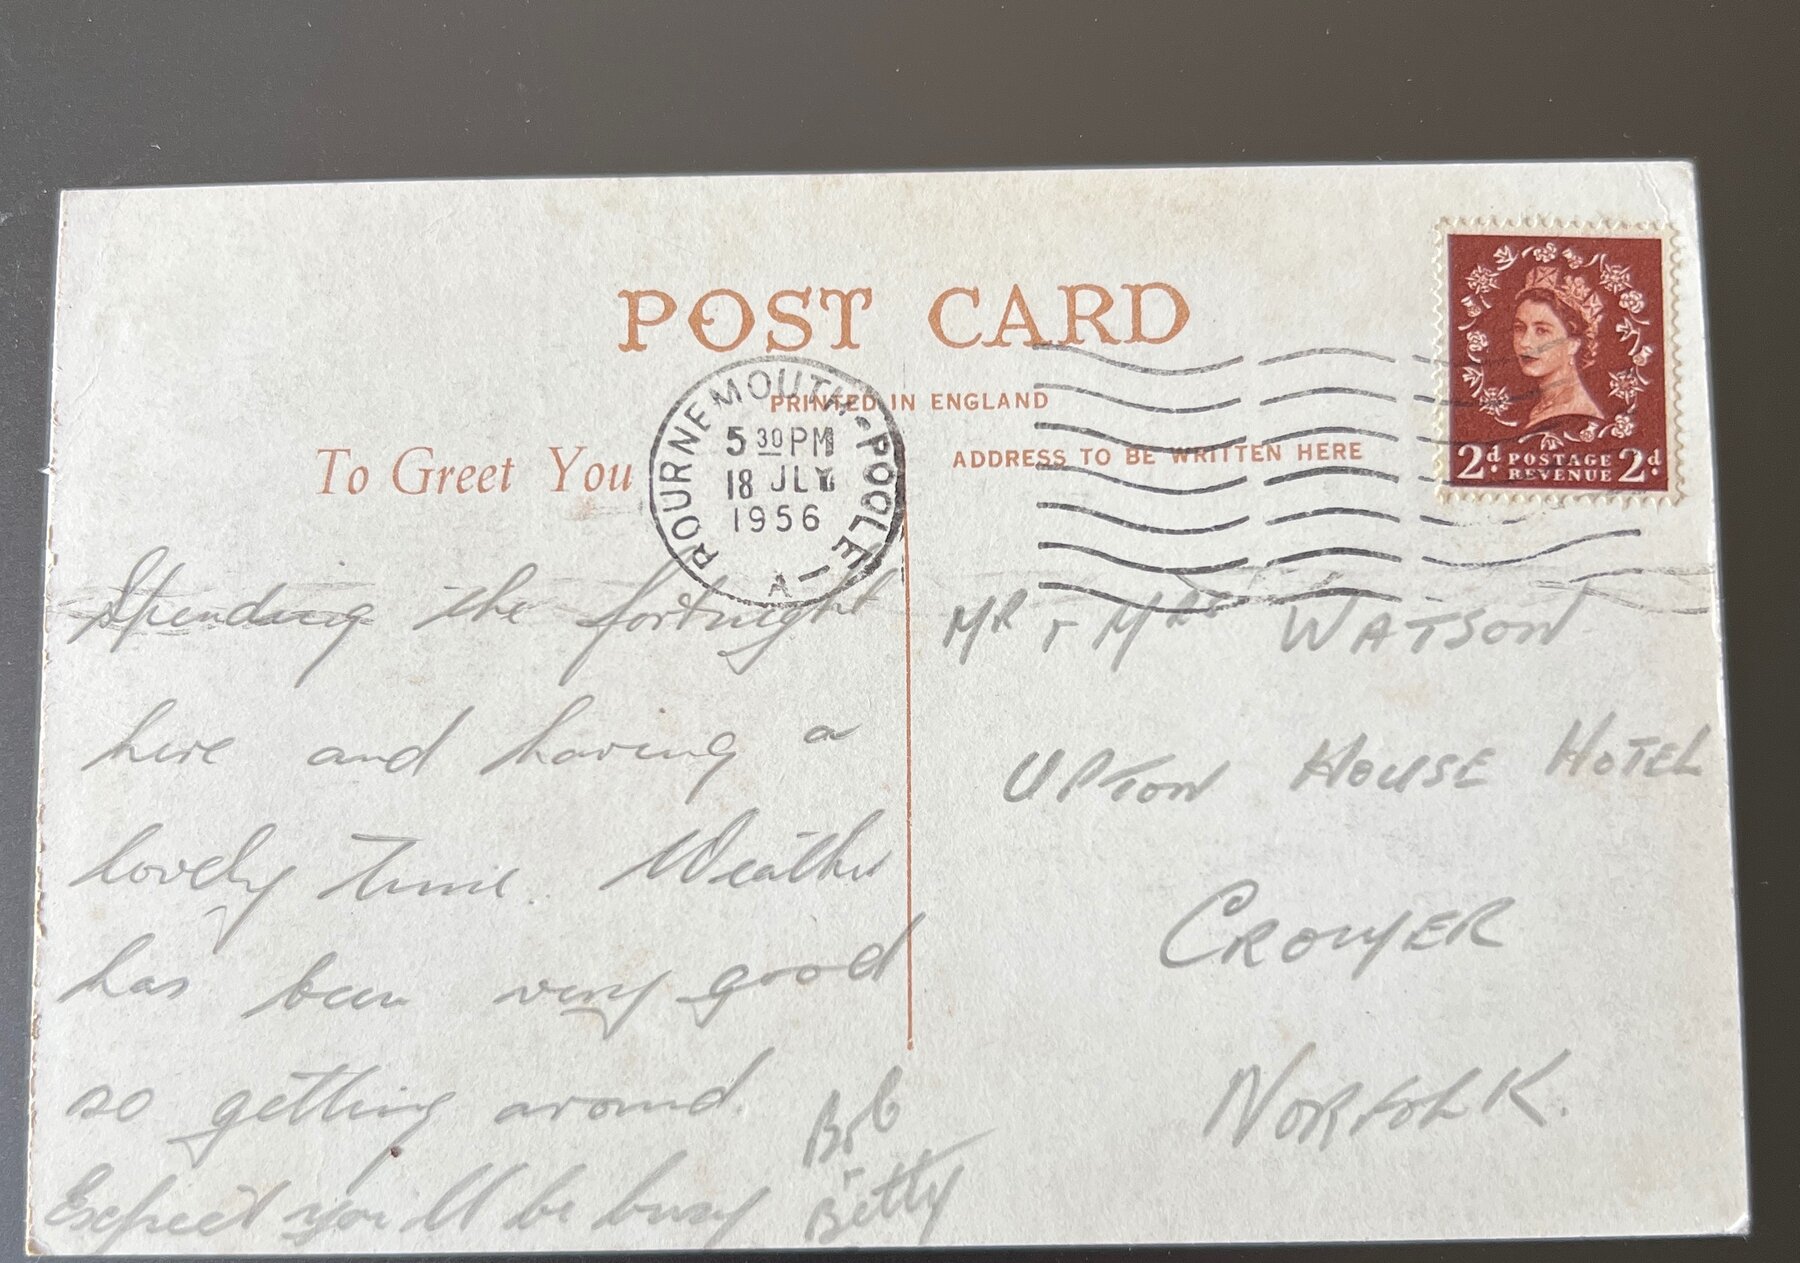 POST CARD
PRINTED IN ENGLAND
To Greet You
ADDRESS TO BE WRITTEN HERE
BOURNEMOUTH·POOLE
5 30 PM
18 JLY
1956
A
2d POSTAGE REVENUE 2d
Spending the fortnight
here and having a
lovely time. Weather
has been very good
so getting around.
Expect you'll be busy
Bob
+
Betty
MR + MRS WATSON
UPTON HOUSE HOTEL
CROMER
NORFOLK.